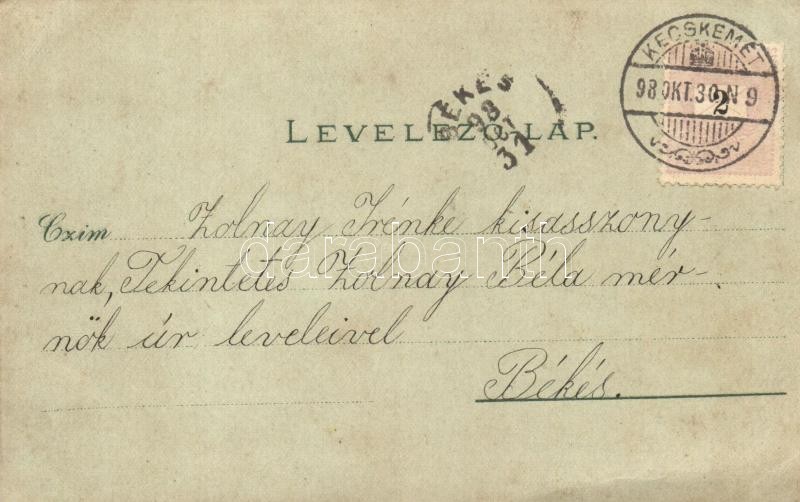 KECSKEMÉT
98 OKT. 30 N 9
2
BÉKÉS
98 OKT
31
LEVELEZŐ LAP.
Czim Zolnay Irénke kisasszony-
nak, Tekintetes Zolnay Béla mér-
nök úr leveleivel
Békés.
darabanth